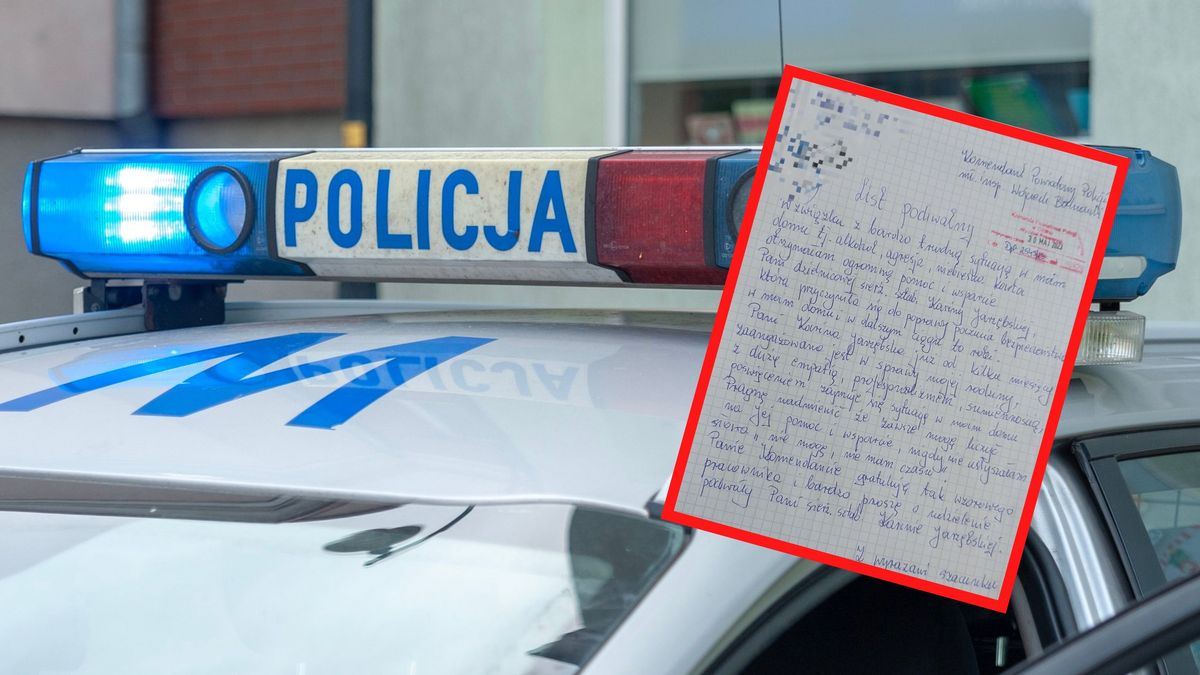 POLICJA
Komendant Powiatowy Policji
mł. insp. Wojciech
List podchwalny
W związku z bardzo trudną sytuacją w moim
domu tj. alkohol, agresja, niebieska karta
otrzymałam ogromną pomoc i wsparcie
Pani dzielnicowej sierż. sztab. Kariny Jarzębskiej,
która przyczyniła się do poprawy poczucia bezpieczeństwa
w moim domu i w dalszym ciągu to robi.
Pani Karina Jarzębska już od kilku miesięcy
zaangażowana jest w sprawy mojej rodziny,
z dużą empatią, profesjonalizmem, sumiennością,
poświęceniem zajmuje się sytuacją w moim domu
Pragnę nadmienić że zawsze mogę liczyć
na Jej pomoc i wsparcie, nigdy nie usłyszałam
słowa "nie mogę, nie mam czasu".
Panie Komendancie gratuluję tak wzorowego
pracownika i bardzo proszę o udzielenie
pochwały Pani sierż. sztab. Karinie Jarzębskiej.
Z wyrazami szacunku
30 MAJ 2023
POLICJA